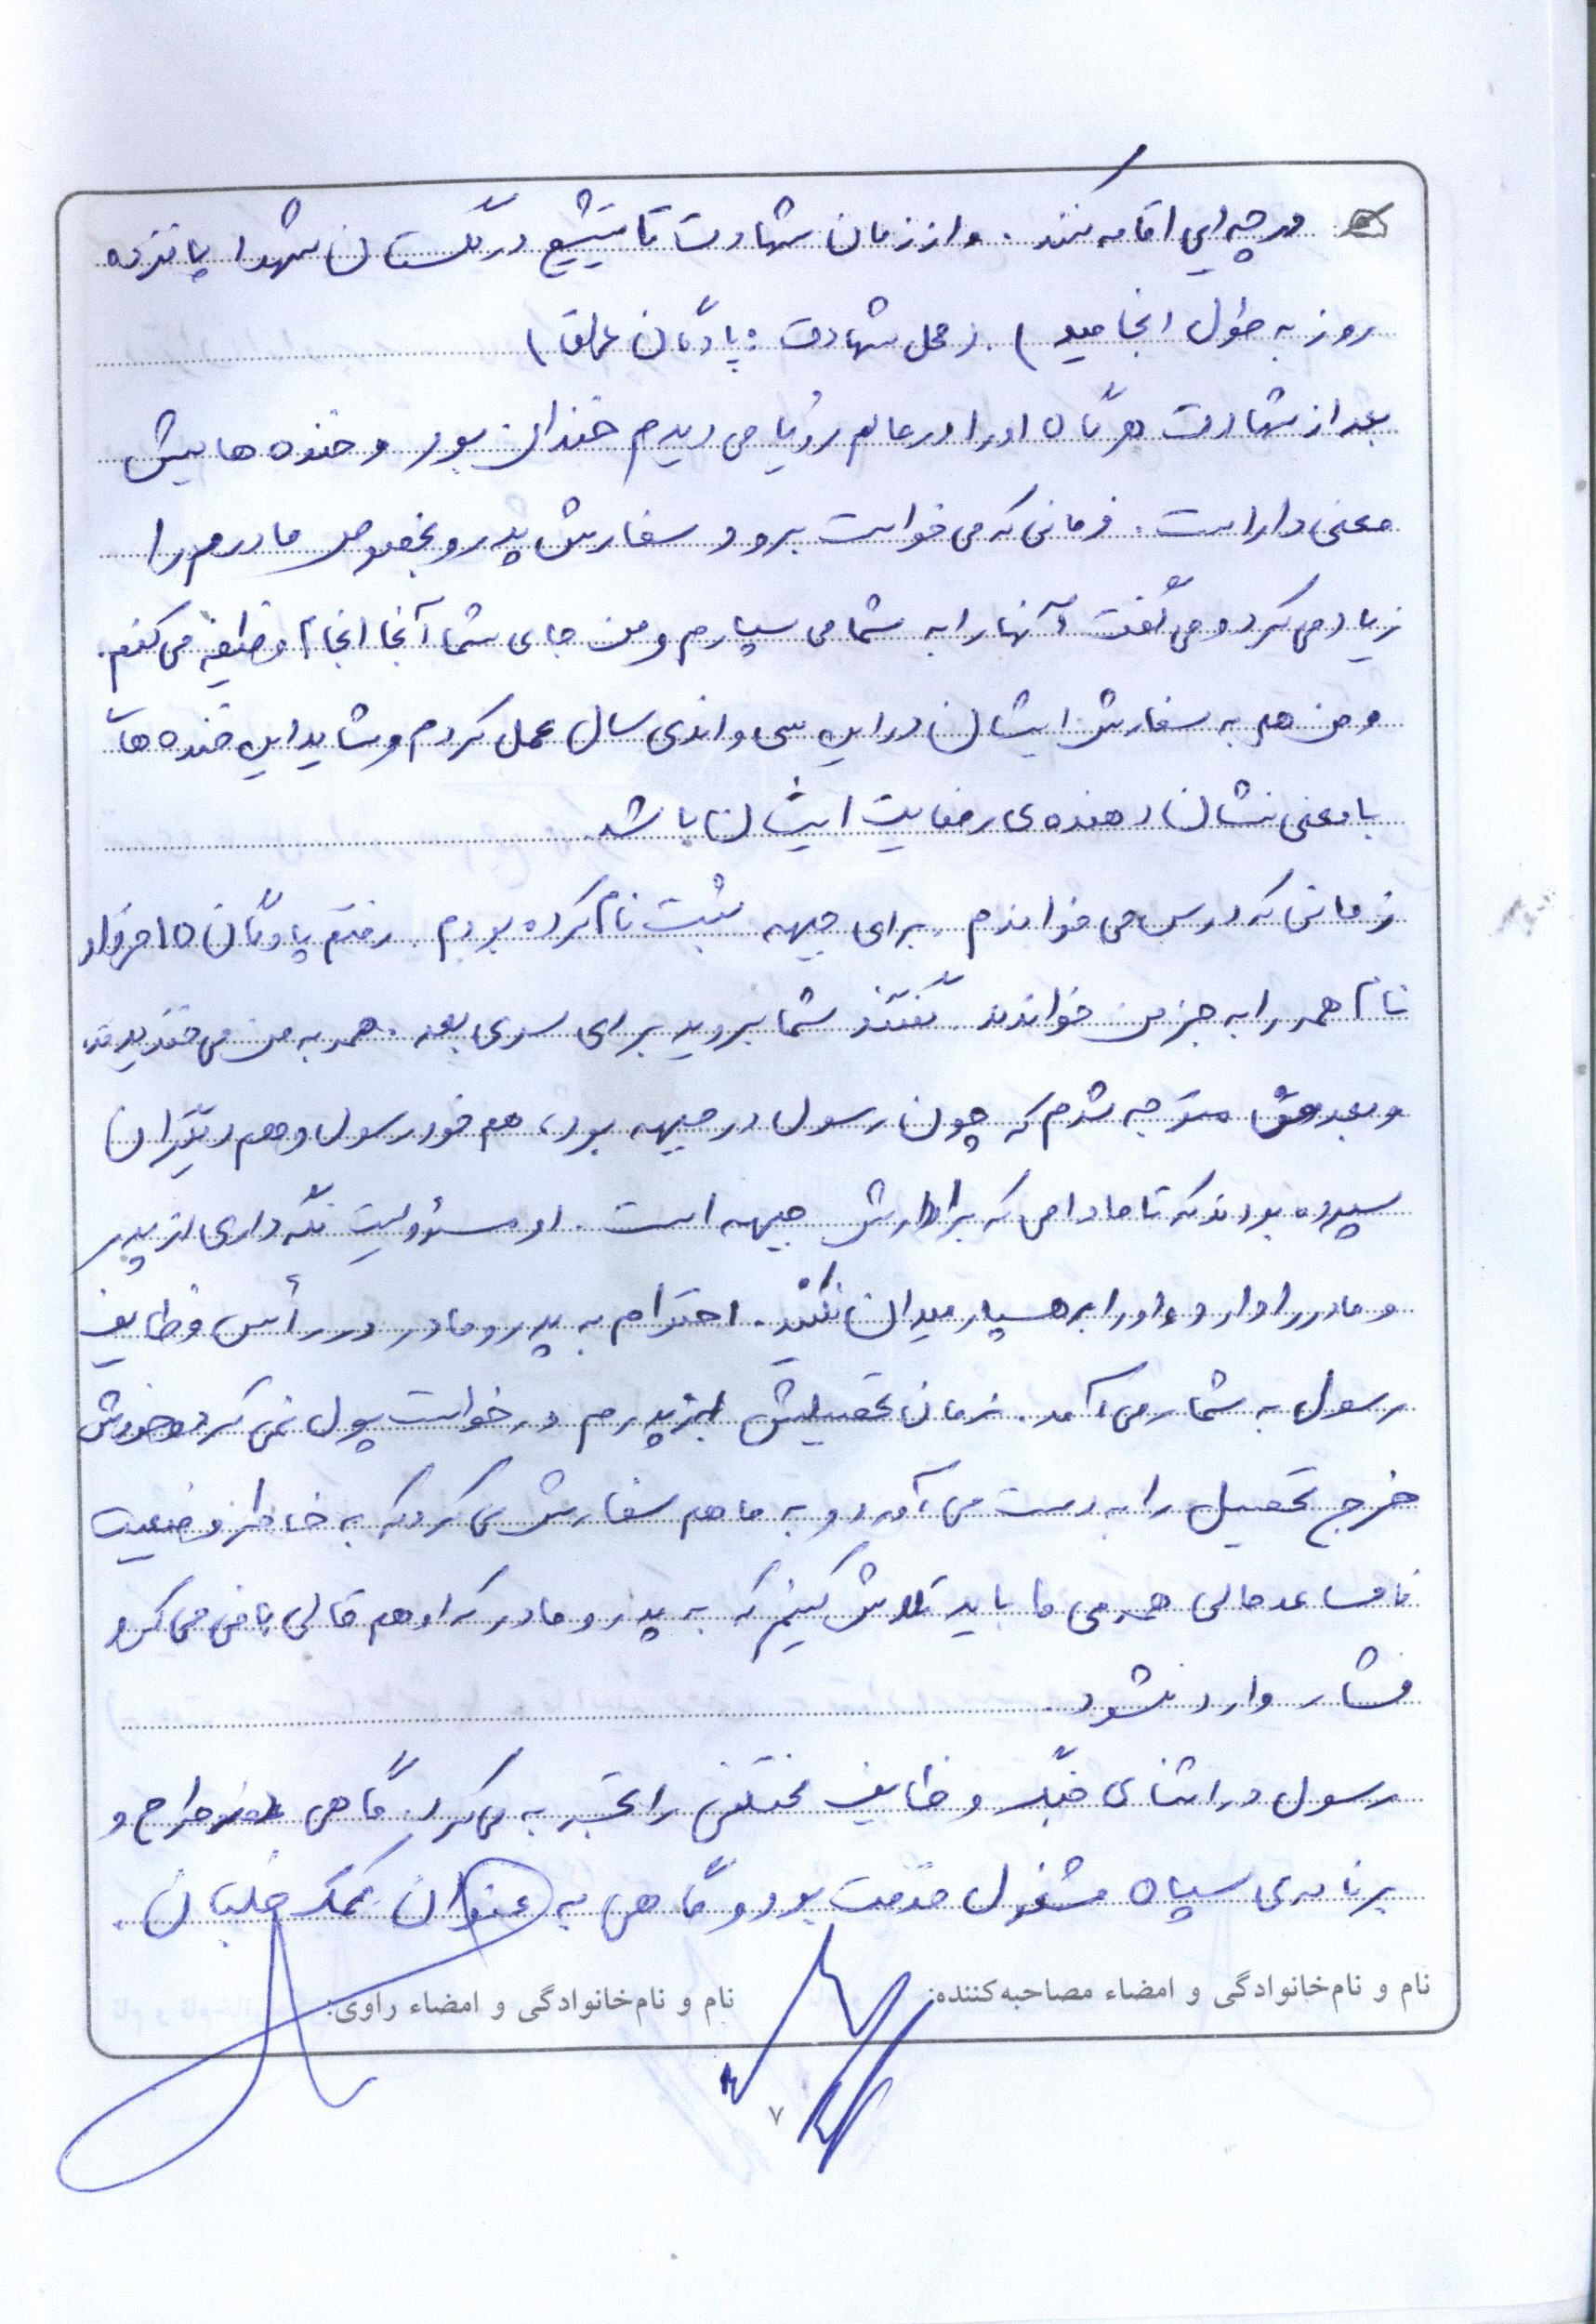 درچه‌ایی اقامه کنند. و از زمان شهادت تا تشییع در گلستان شهدا پانزده
روز به طول انجامید). (محل شهادت: پادگان عملق)
بعد از شهادت هرگاه او را در عالم رؤیا می دیدم خندان بود و خنده هایش
معنی دار است. زمانی که می خواست برود سفارش پدر و بخصوص مادرم را
زیاد می کرد و می گفت آنها را به شما می سپارم و من جای شما آنجا انجام وظیفه می کنم.
و من هم به سفارش ایشان در این سی و اندی سال عمل کردم و شاید این خنده های
با معنی نشان دهنده ی رضایت ایشان باشد.
زمانی که درس می خواندم، برای جبهه ثبت نام کرده بودم. رفتم پادگان ۱۵ خرداد
نام همه را به جز من خواندند. گفتند شما بروید برای سری بعد. همه به من می خندیدند،
و بعد متوجه شدم که چون رسول در جبهه بود، هم خود رسول و هم دیگران
سپرده بودند که تا مادامی که برادرش جبهه است. او مسئولیت نگه داری از پدر
و مادر را دارد، او را رهسپار میدان نکنید. احترام به پدر و مادر در رأس وظایف
رسول به شمار می آمد. زمان تحصیلش از پدرم درخواست پول نمی کرد و خودش
خرج تحصیل را به دست می آورد و به ما هم سفارش می کرد که به خاطر وضعیت
نامساعد مالی همه ی ما باید تلاش کنیم که به پدر و مادر که او هم قالی بافی می کرد
فشار وارد نشود.
رسول در اثنای جنگ وظایف مختلفی را تجربه می کرد. گاهی طراح و
برنامه ی سپاه مشغول خدمت بود و گاهی به عنوان کمک خلبان.
نام و نام‌خانوادگی و امضاء مصاحبه‌کننده: نام و نام‌خانوادگی و امضاء راوی:
۷